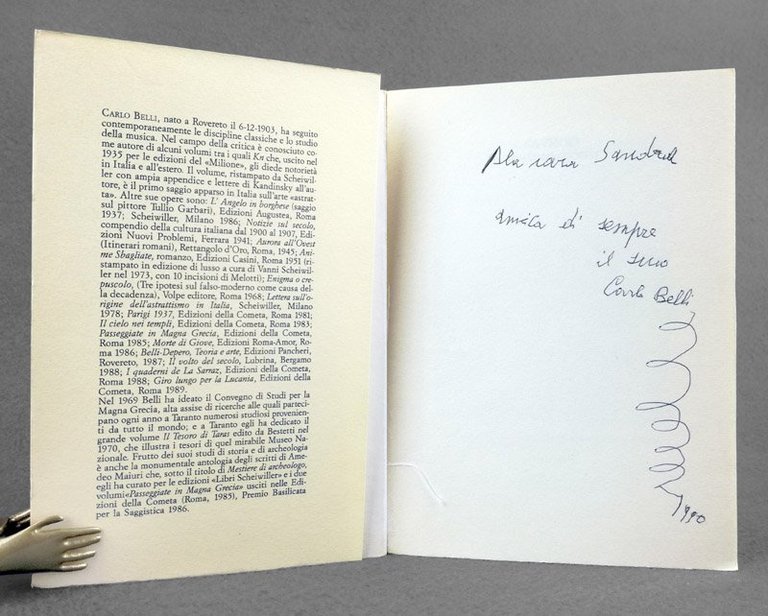 CARLO BELLI, nato a Rovereto il 6-12-1903, ha seguito
contemporaneamente le discipline classiche e lo studio
della musica. Nel campo della critica è conosciuto co-
me autore di alcuni volumi tra i quali Kn che, uscito nel
1935 per le edizioni del «Milione», gli diede notorietà
in Italia e all'estero. Il volume, ristampato da Scheiwil-
ler con ampia appendice e lettere di Kandinsky all'au-
tore, è il primo saggio apparso in Italia sull'arte «astrat-
ta». Altre sue opere sono: L'Angelo in borghese (saggio
sul pittore Tullio Garbari), Edizioni Augustea, Roma
1937; Scheiwiller, Milano 1986; Notizie sul secolo,
compendio della cultura italiana dal 1900 al 1907, Edi-
zioni Nuovi Problemi, Ferrara 1941; Aurora all'Ovest
(Itinerari romani), Rettangolo d'Oro, Roma, 1945; Ani-
me Sbagliate, romanzo, Edizioni Casini, Roma 1951 (ri-
stampato in edizione di lusso a cura di Vanni Scheiwil-
ler nel 1973, con 10 incisioni di Melotti); Enigma o cre-
puscolo, (Tre ipotesi sul falso-moderno come causa del-
la decadenza), Volpe editore, Roma 1968; Lettera sull'o-
rigine dell'astrattismo in Italia, Scheiwiller, Milano
1978; Parigi 1937, Edizioni della Cometa, Roma 1981;
Il cielo nei templi, Edizioni della Cometa, Roma 1983;
Passeggiate in Magna Grecia, Edizioni della Cometa,
Roma 1985; Morte di Giove, Edizioni Roma-Amor, Ro-
ma 1986; Belli-Depero, Teoria e arte, Edizioni Pancheri,
Rovereto, 1987; Il volto del secolo, Lubrina, Bergamo
1988; I quaderni de La Sarraz, Edizioni della Cometa,
Roma 1988; Giro lungo per la Lucania, Edizioni della
Cometa, Roma 1989.
Nel 1969 Belli ha ideato il Convegno di Studi per la
Magna Grecia, alta assise di ricerche alle quali parteci-
pano ogni anno a Taranto numerosi studiosi provenien-
ti da tutto il mondo; e a Taranto egli ha dedicato il
grande volume Il Tesoro di Taras edito da Bestetti nel
1970, che illustra i tesori di quel mirabile Museo Na-
zionale. Frutto dei suoi studi di storia e di archeologia
è anche la monumentale antologia degli scritti di Ame-
deo Maiuri che, sotto il titolo di Mestiere di archeologo,
egli ha curato per le edizioni «Libri Scheiwiller» e i due
volumi «Passeggiate in Magna Grecia» usciti nelle Edi-
zioni della Cometa (Roma, 1985), Premio Basilicata
per la Saggistica 1986.
Alla cara
amica di sempre
il suo
Carlo Belli
1990